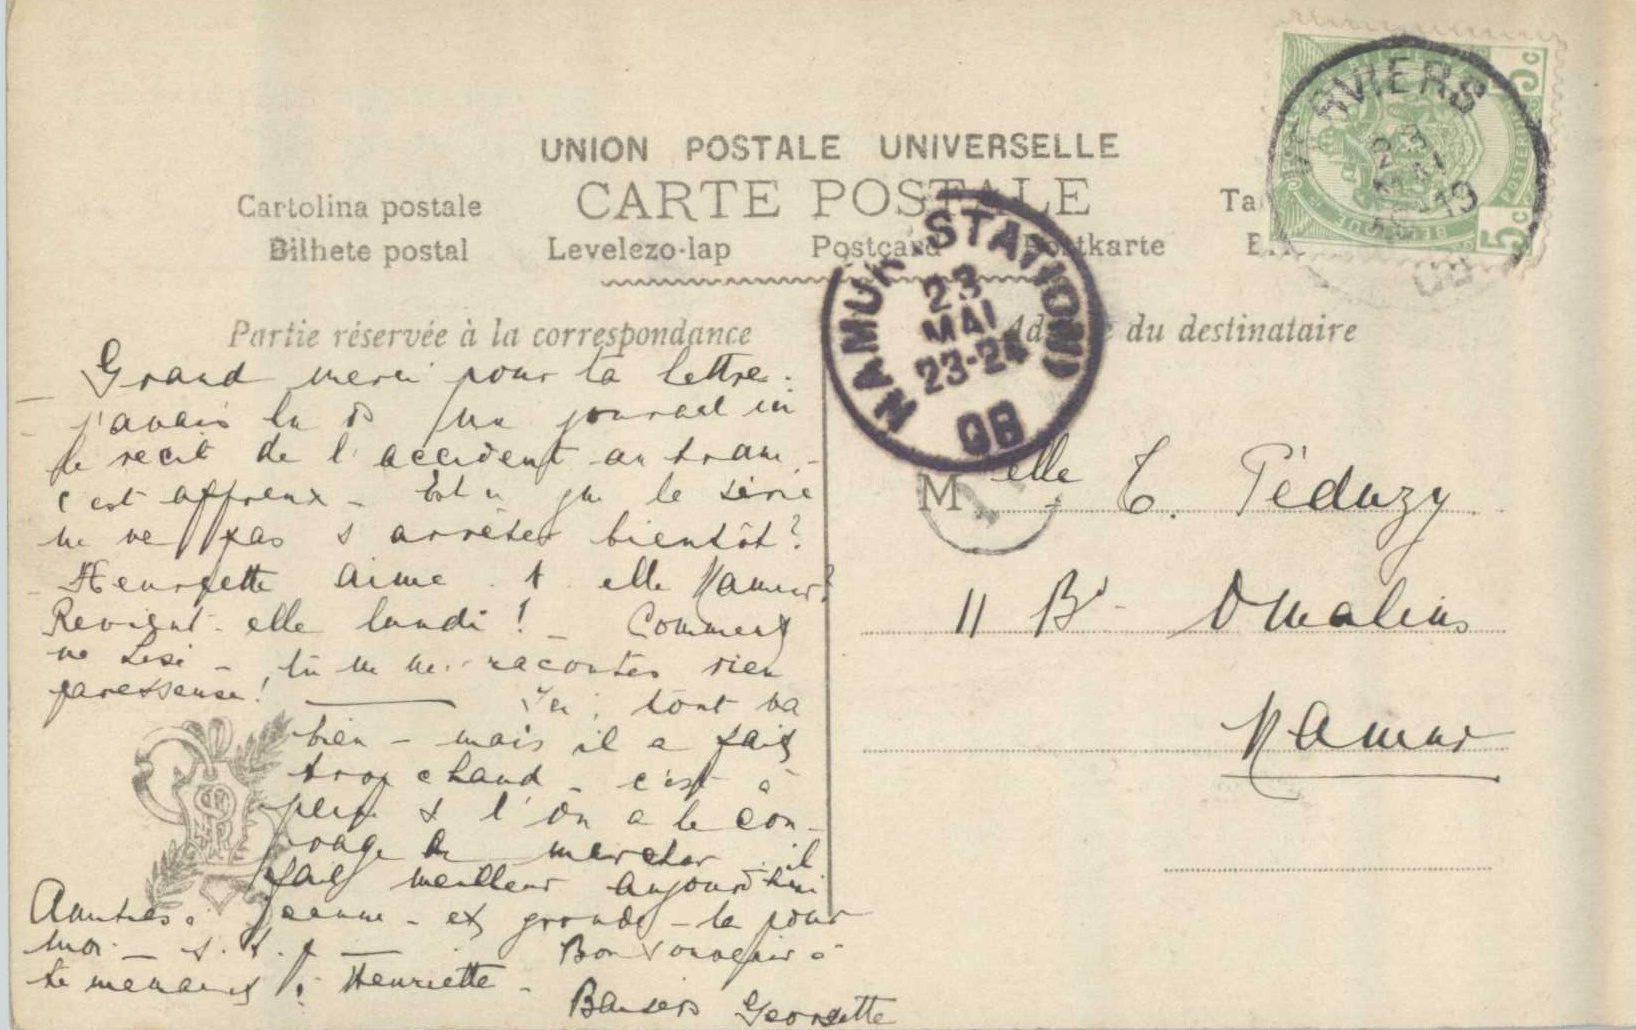 UNION POSTALE UNIVERSELLE
CARTE POSTALE
Cartolina postale
Bilhete postal Levelezo-lap Postcard Postkarte
Partie réservée à la correspondance
Adresse du destinataire
VERVIERS
23
MAI
19
08
5c
5c
NAMUR (STATION)
23
MAI
23-24
08
Grand merci pour ta lettre.
j'avais lu ds un journal ici
le récit de l'accident au tram
c'est affreux - Est-ce que la série
ne va pas s'arrêter bientôt?
Henriette aime-t-elle Namur?
Revient-elle lundi! - Comment
va Lisi - tu ne me racontes rien
paresseuse! Ici, tout va
bien - mais il a fait
trop chaud - c'est à
peine si l'on a le cou-
rage de marcher - il
fait meilleur aujourd'hui
Amitiés à Jeanne - et gronde-la pour
moi - s. t. p - Bon souvenir à
ta maman & à Henriette -
Baisers Georgette
Melle T. Péduzy
11 Bd Omalius
Namur